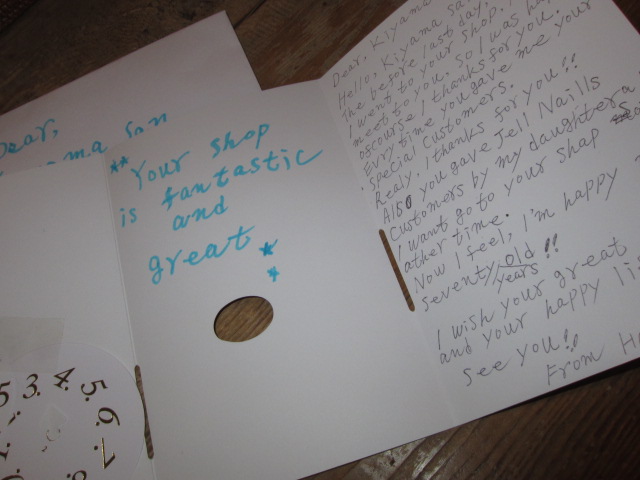 Dear,
ama San
** Your shop
is fantastic
and
great *
*
Dear, Kiyama
Hello, Kiyama sa
The before last day,
I went to your shop.
meet to you. So I was ha
oscourse I thanks for you.
Evry time you gave me your
special customers.
Realy, I thanks for you!!
Also you gave Jell Naills
Customers by my daughter
I want go to your shap
ather time.
Now I feel, I'm happy
seventy old !!
years
I wish your great
and your happy li
see you!!
From H
5 3. 4. 5. 6. 7 8